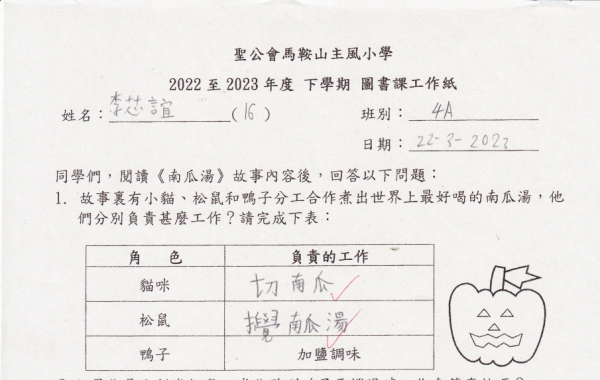 聖公會馬鞍山主風小學
2022 至 2023 年度 下學期 圖書課工作紙
姓名：李芯誼 (16) 班別：4A
日期：22-3-2023
同學們，閱讀《南瓜湯》故事內容後，回答以下問題：
1. 故事裏有小貓、松鼠和鴨子分工合作煮出世界上最好喝的南瓜湯，他
們分別負責甚麼工作？請完成下表：
角 色 負責的工作
貓咪 切南瓜
松鼠 攪南瓜湯
鴨子 加鹽調味